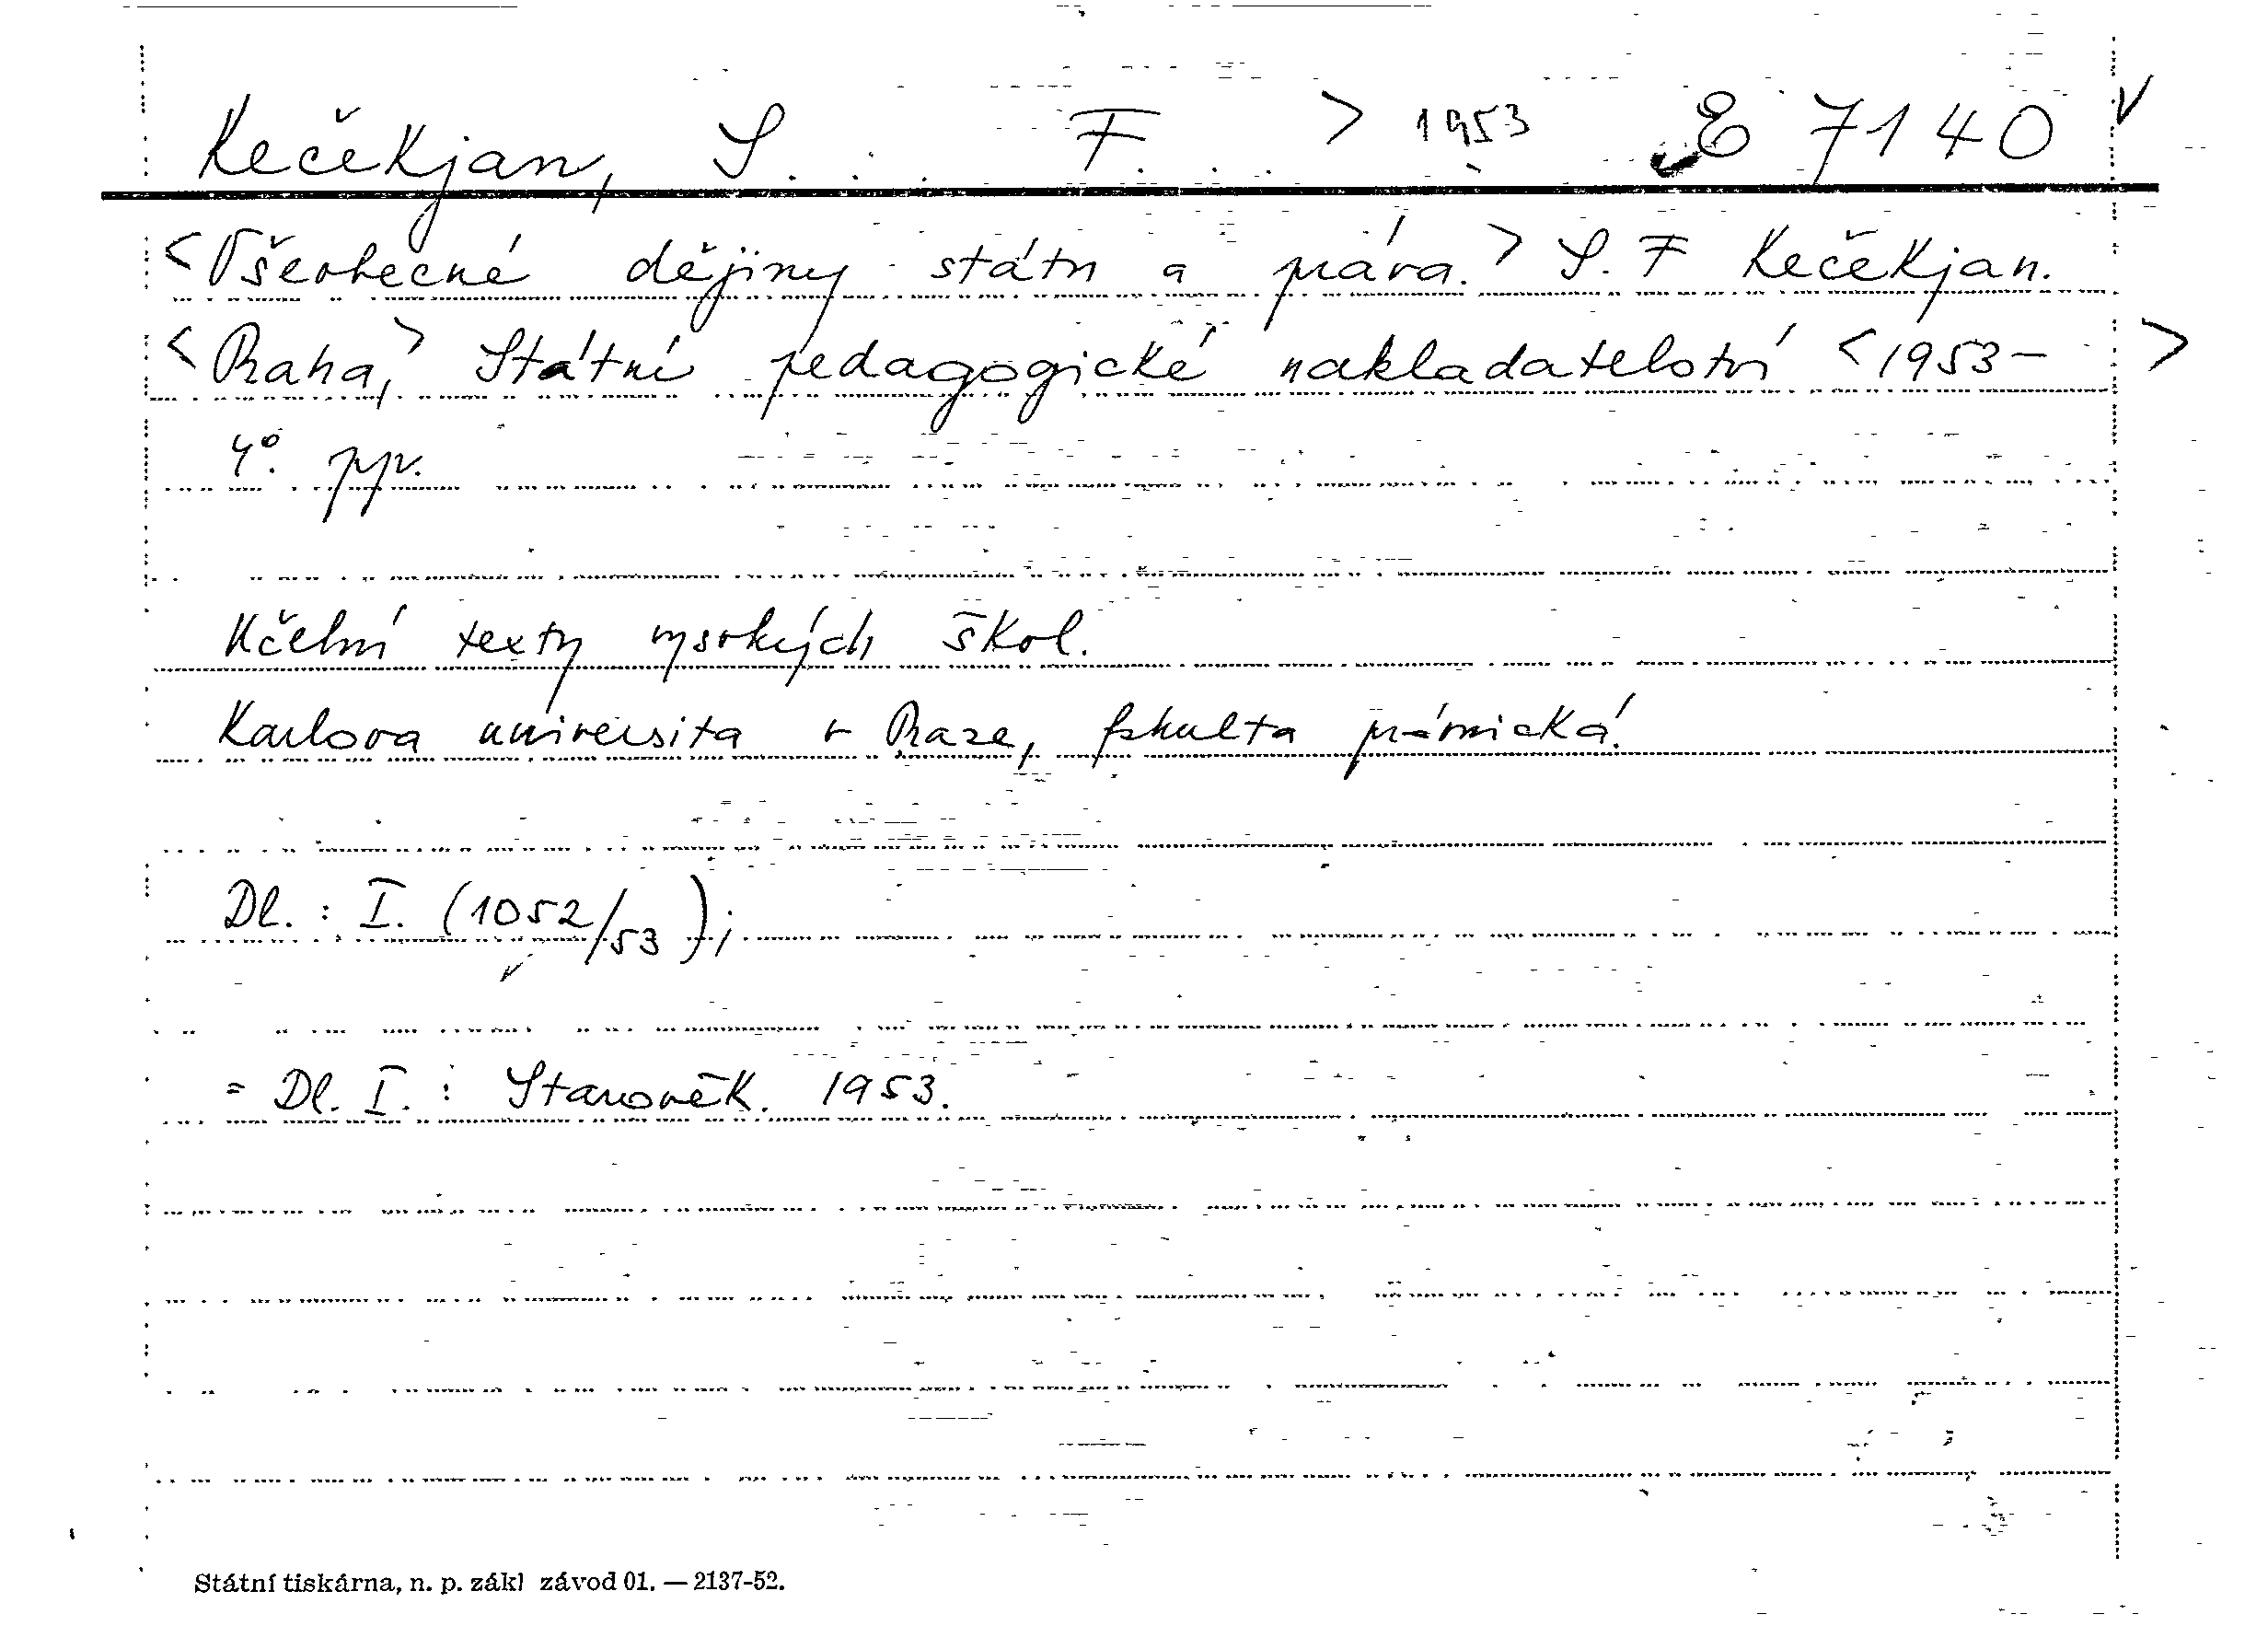 Kečekjan, S. . . F. . . > 1953 E 7140
<Všeobecné dějiny státu a práva.> S. F Kečekjan.
<Praha,> Státní pedagogické nakladatelství <1953— >
4°. ppv.
Učební texty vysokých škol.
Karlova universita v Praze, fakulta právnická.
Dl. : I. (1052/53);
= Dl. I. : Starověk. 1953.
Státní tiskárna, n. p. zákl závod 01. — 2137-52.